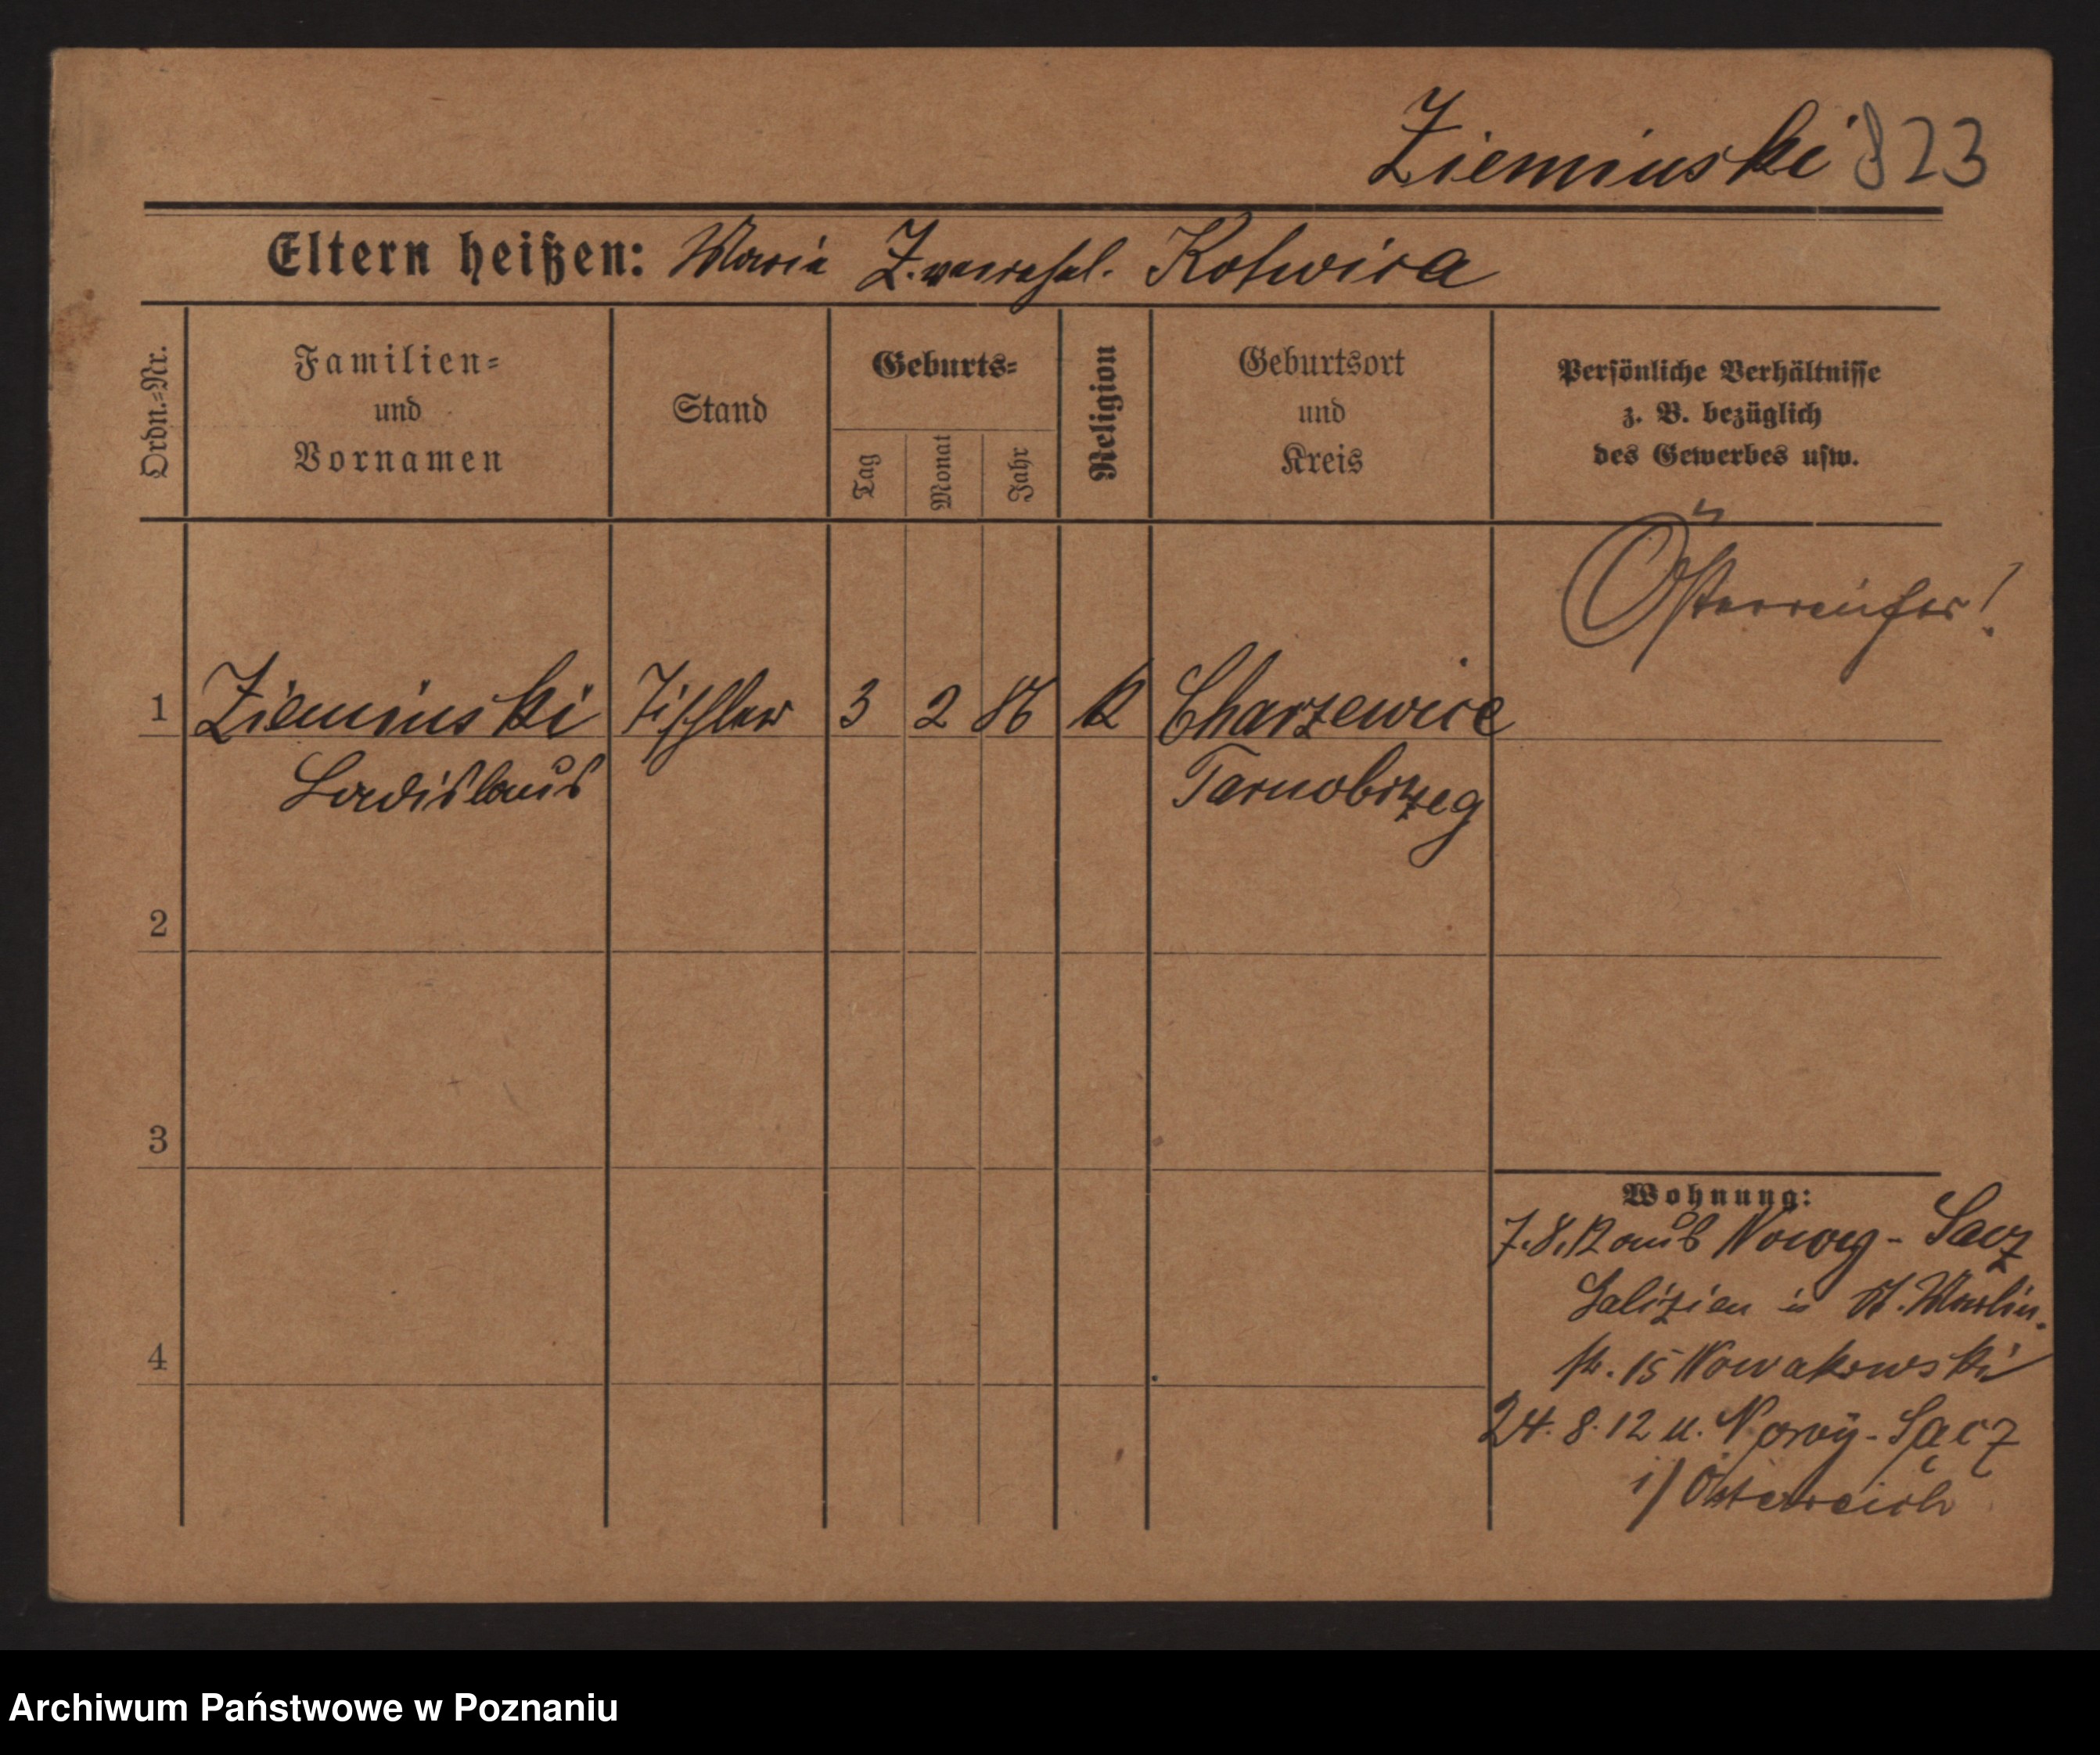 Zieminski 823
Eltern heißen: Maria Z. verehel. Kotwica
Ordn.-Nr.
Familien-
und
Vornamen
Stand
Geburts-
Tag
Monat
Jahr
Religion
Geburtsort
und
Kreis
Persönliche Verhältnisse
z. B. bezüglich
des Gewerbes usw.
Österreicher!
1 Zieminski Tischler 3 2 86 k Charzewice
Ladislaus Tarnobrzeg
2
3
4
Wohnung:
7.8.12 aus Nowy-Sacz
Galizien in St. Martin
str. 15 Nowakowski
24.8.12 n. Nowy-Sącz
i/Österreich
Archiwum Państwowe w Poznaniu